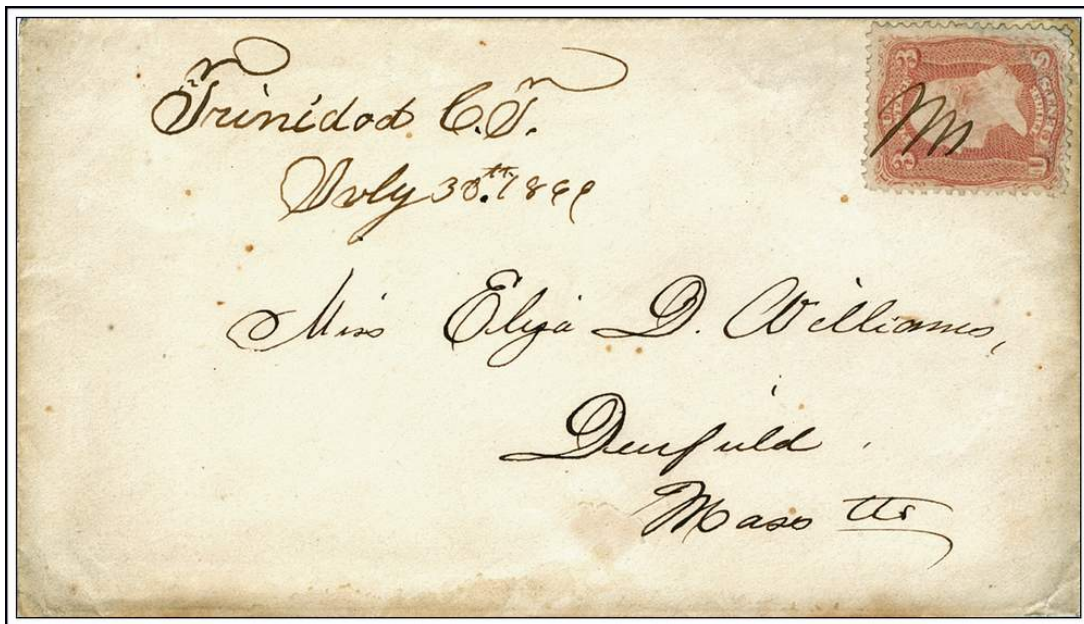 Trinidad C.T.
July 30th. 1866
Miss Eliza D. Williams,
Deerfield
Masstts
3 3
U S